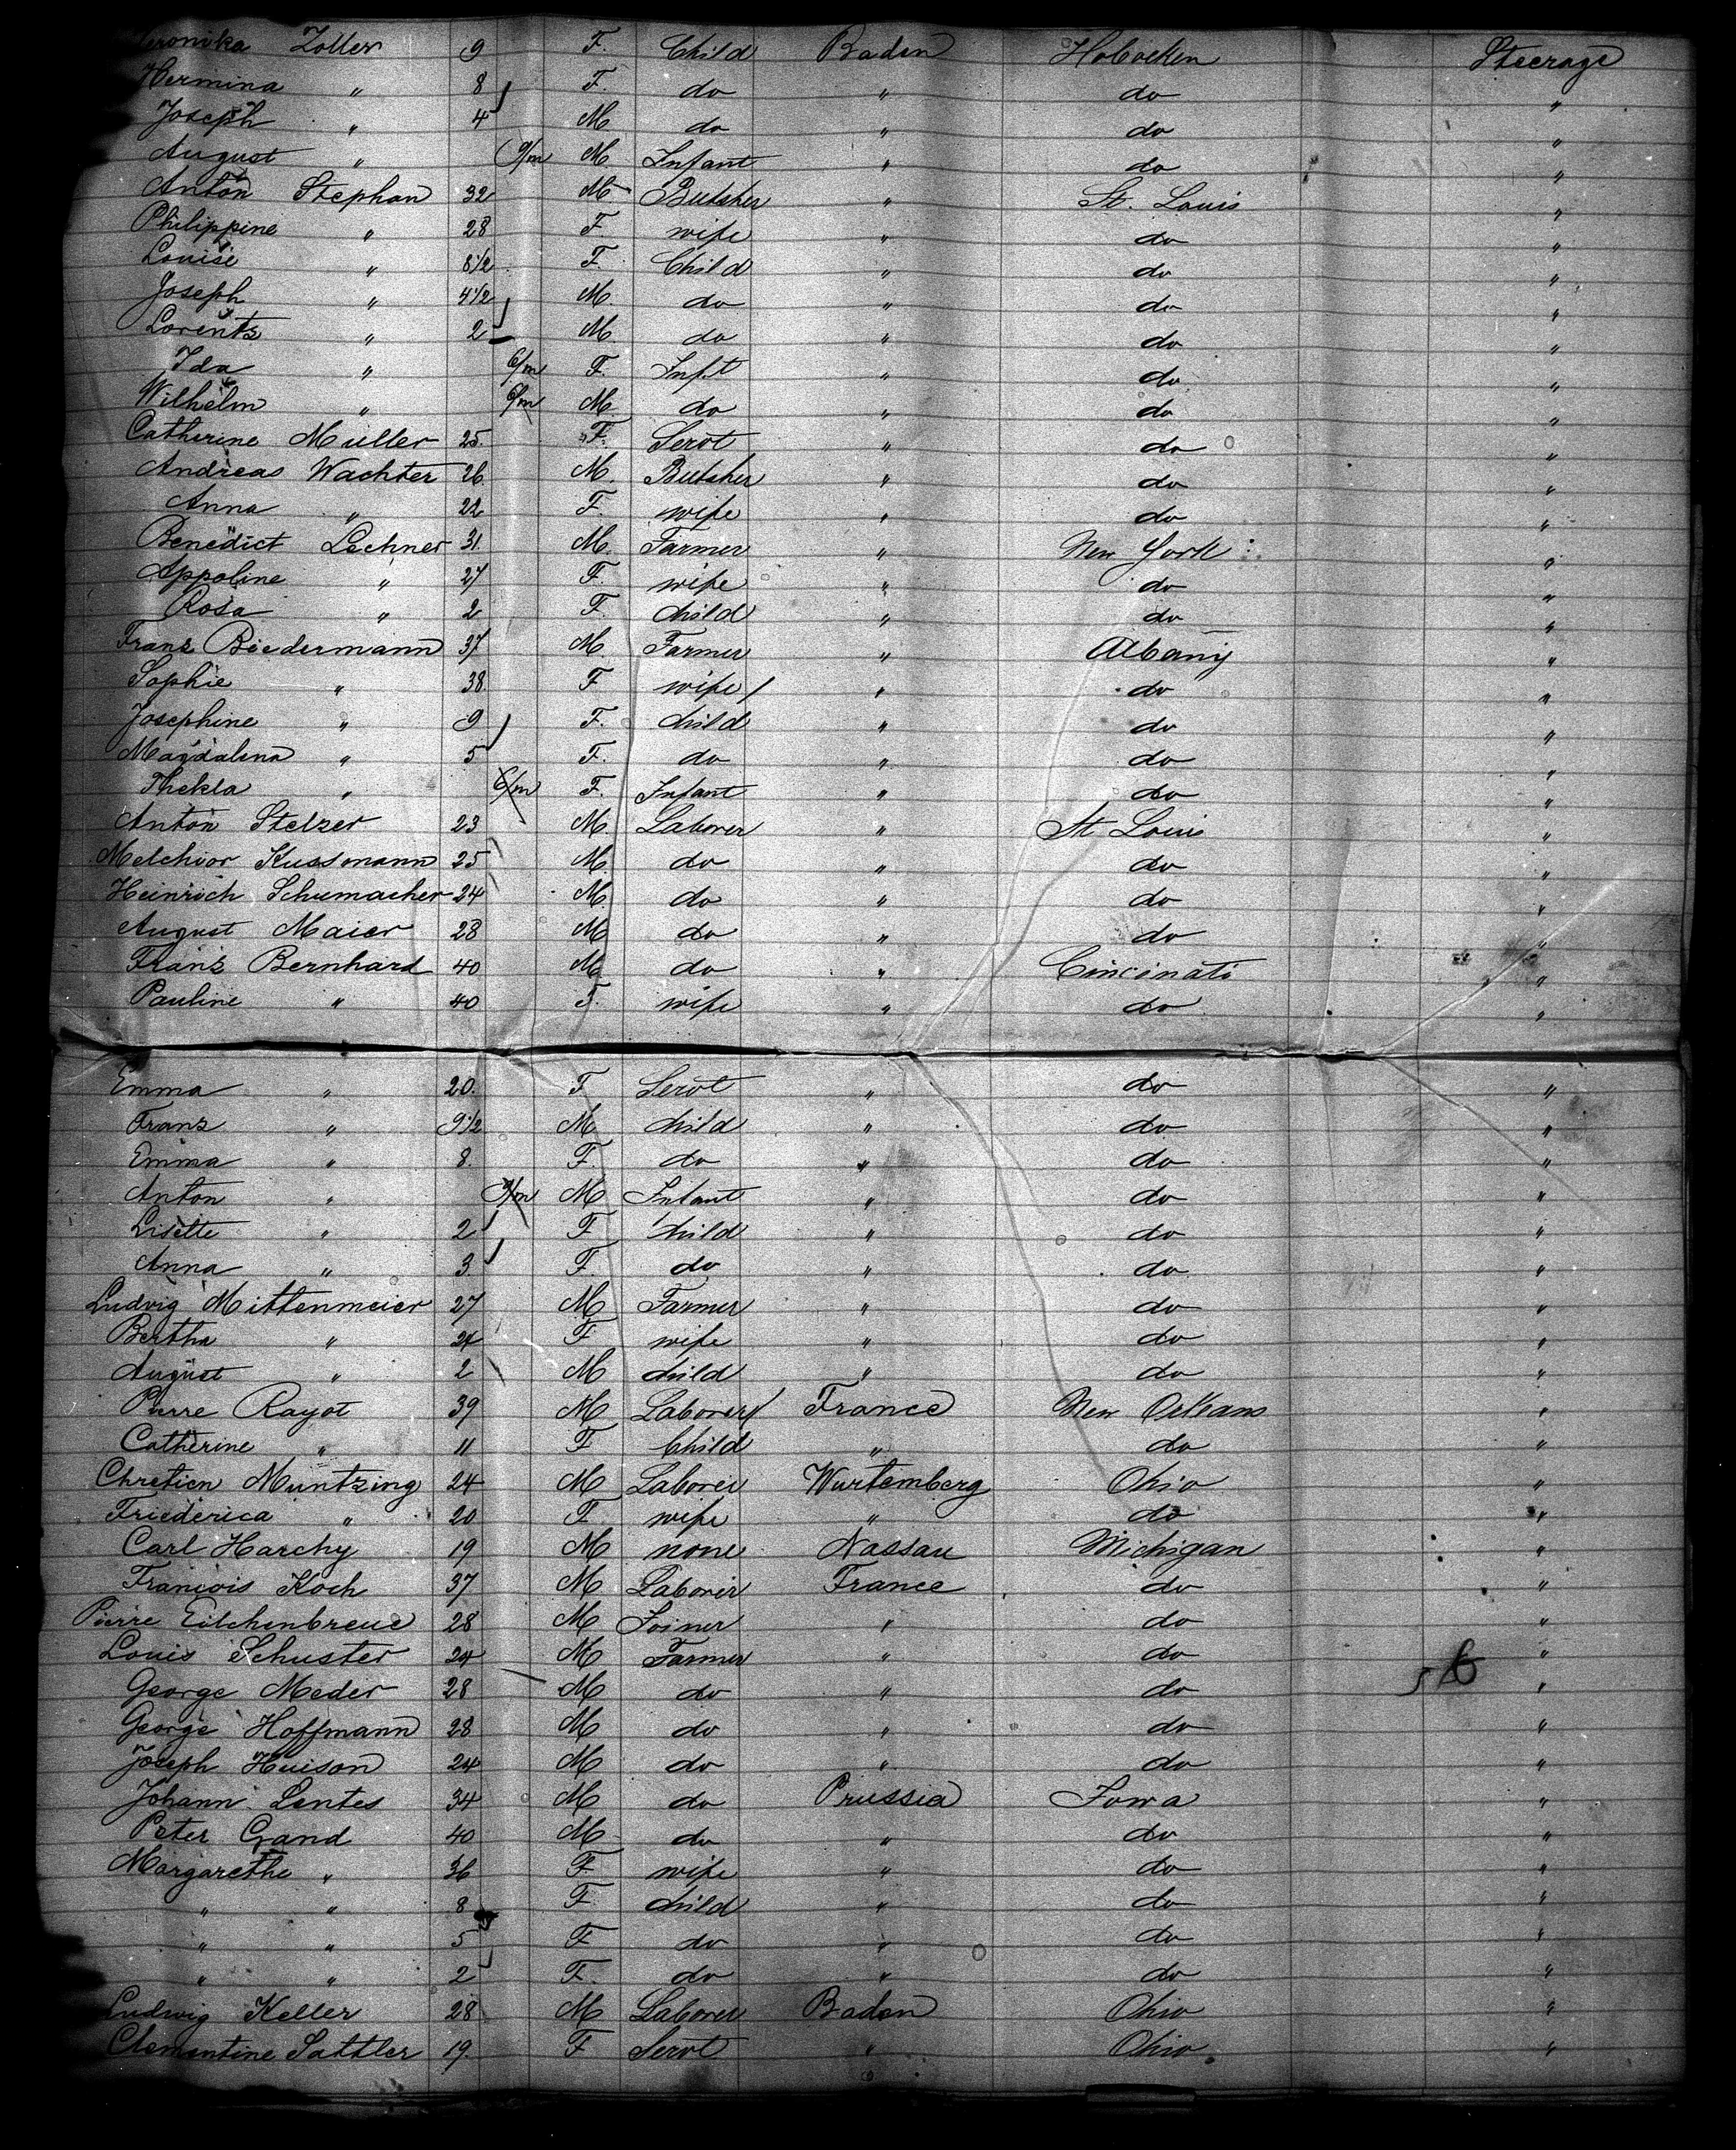 Zoller 9 F. Child Baden Hobocken Steerage
Hermina " 8 F. do " do "
Joseph " 4 M do " do "
August " 9/m M Infant " do "
Anton Stephan 32 M Butsher " St. Louis "
Philippine " 28 F wife " do "
Louise " 8 1/2 F. Child " do "
Joseph " 4 1/2 M. do " do "
Lorentz " 2 M do " do "
Ida " 6/m F. Inft " do "
Wilhelm " 6/m M. do " do "
Catherine Müller 25. F. Servt " do "
Andreas Wachter 26 M. Butsher " do "
Anna " 22 F. wife " do "
Benedict Lechner 31. M. Farmer " New York "
Appoline " 27 F. wife " do "
Rosa " 2 F. child " do "
Franz Biedermann 37 M. Farmer " Albany "
Sophie " 38 F wife " do "
Josephine " 9 F. child " do "
Magdalena " 5 F. do " do "
Thekla " 6/m F. Infant " do "
Anton Stelzer 23 M. Laborer " St Louis "
Melchior Kussmann 25 M. do " do "
Heinrich Schumacher 24 M. do " do "
August Maier 28 M do " do "
Franz Bernhard 40 M. do " Cincinati "
Pauline " 40 F. wife " do "
Emma " 20. F Servt " do "
Franz " 9 1/2 M child " do "
Emma " 8. F. do " do "
Anton " M Infant " do "
Lisette " 2 F child " do "
Anna " 3. F. do " do "
Ludvig Mittenmeier 27 M Farmer " do "
Bertha " 24 F wife " do "
August " 2 M child " do "
Pierre Rayot 39 M Laborer France New Orleans "
Catherine " 11 F Child " do "
Chretien Muntzing 24 M Laborer Wurtemberg Ohio "
Friederica " 20 F wife " do "
Carl Harchy 19 M none Nassau Michigan "
Francois Koch 37 M Laborer France do "
Pierre Eilchenbreuc 28 M Joiner " do "
Louis Schuster 24 M Farmer " do "
George Meder 28 M do " do "
George Hoffmann 28 M do " do "
Joseph Huison 24 M do " do "
Johann Lentes 34 M do Prussia Iowa "
Peter Grand 40 M do " do "
Margarethe " 36 F wife " do "
" " 8 F child " do "
" " 5 F do " do "
" " 2 F. do " do "
Ludwig Keller 28 M Laborer Baden Ohio "
Clementine Sattler 19. F Servt " Ohio "